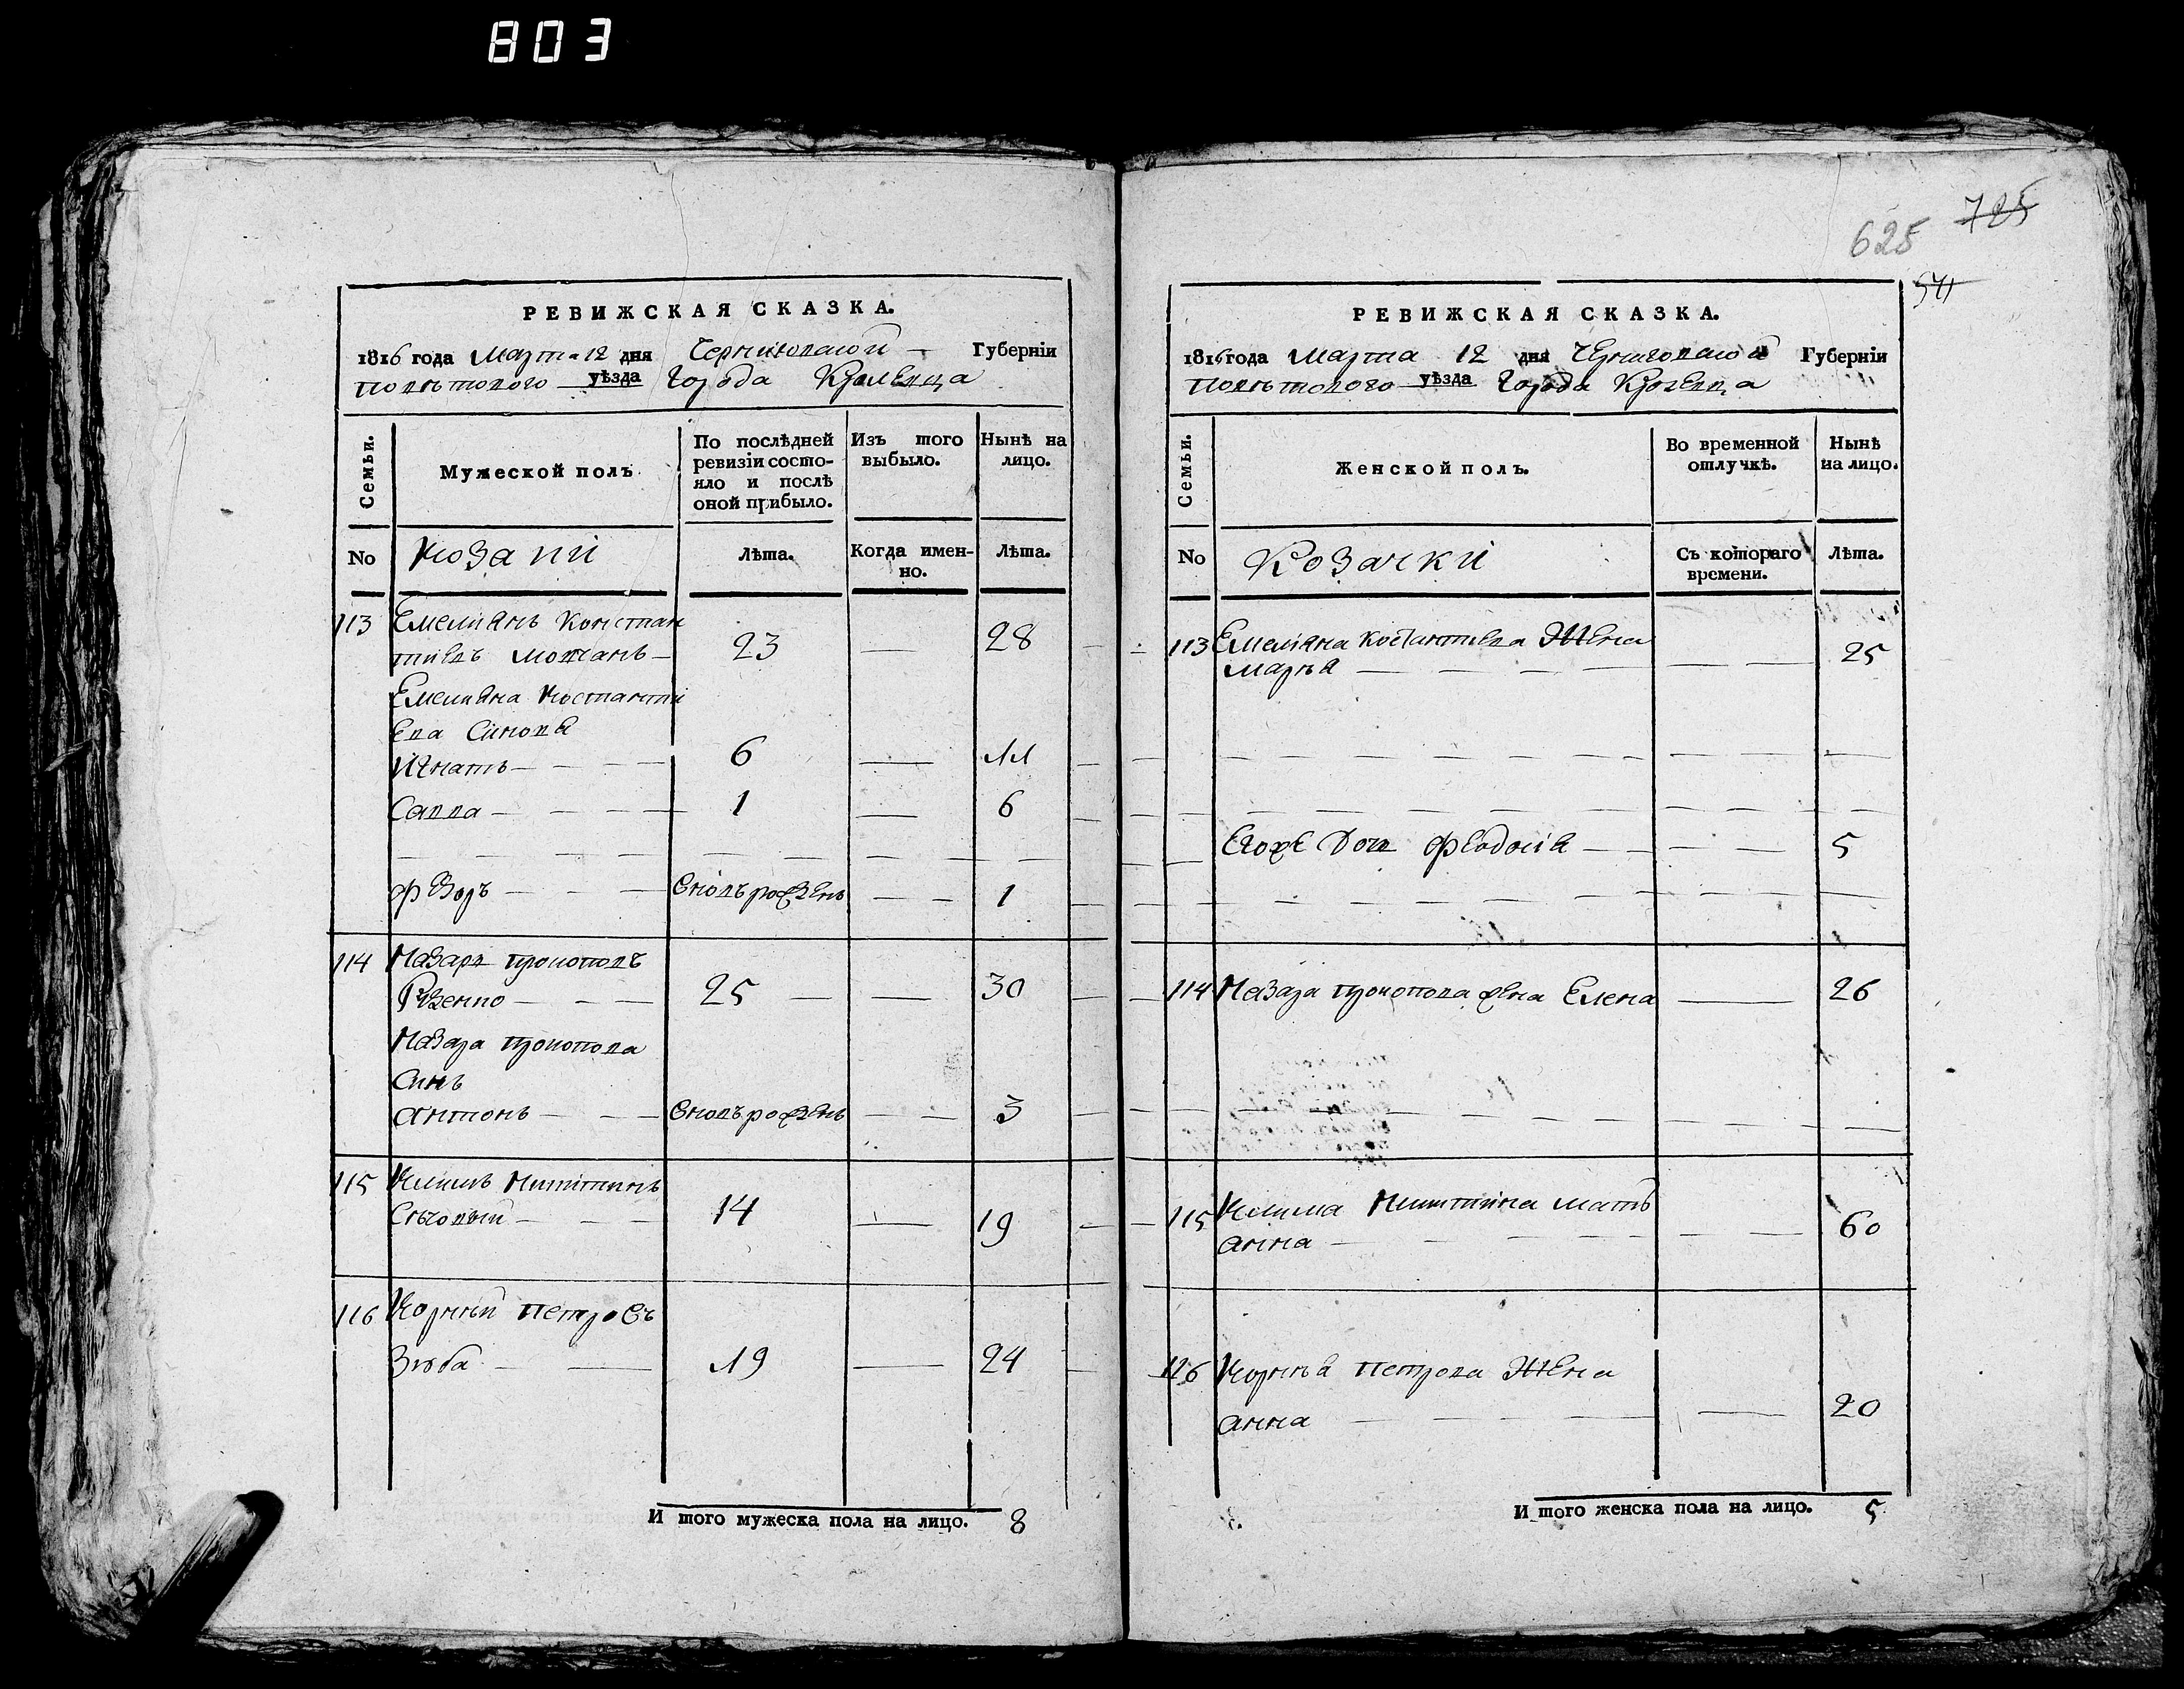 803
625 725
541
РЕВИЖСКАЯ СКАЗКА.
1816 года Марта 12 дня Черниговской Губерніи
Поветового уѣзда Города Кролевца
Семьи. Мужеской полъ По послѣдней ревизіи состояло и послѣ оной прибыло. Изъ того выбыло. Нынѣ на лицо.
No Козаки лѣта. Когда именно. лѣта.
113 Емелиянъ Констан
тиевъ Мовчанъ 23 28
Емелияна Костанти
ева Синовя
Игнатъ 6 11
Савва 1 6
Федоръ вновъ рожденъ 1
114 Назаръ Прокоповъ
25 30
Назара Прокопова
Синъ
Антонъ вновъ рожденъ 3
115 Климъ Никитинъ
14 19
116 Корній Петровъ
Зюба 19 24
И того мужеска пола на лицо. 8
РЕВИЖСКАЯ СКАЗКА.
1816 года Марта 12 дня Черниговской Губерніи
Поветового уѣзда Города Кролевца
Семьи. Женской полъ. Во временной отлучкѣ. Нынѣ на лицо.
No Козачки Съ котораго времени. Лѣта.
113 Емелияна Костантиева Жена
Маря 25
Егоже Дочь Феодосія 5
114 Назара Прокопова жена Елена 26
115 Клима Никитина мать
Анна 60
116 Корнея Петрова Жена
Анна 20
И того женска пола на лицо. 5